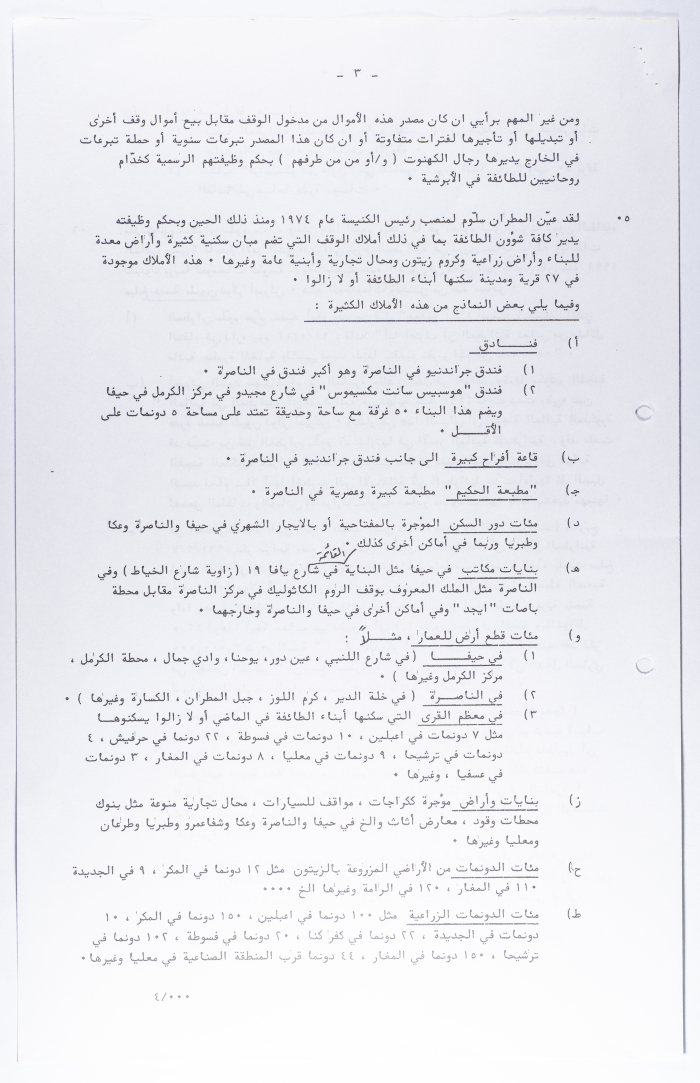 - ٣ -
ومن غير المهم برأيي ان كان مصدر هذه الأموال من مدخول الوقف مقابل بيع أموال وقف أخرى
أو تبديلها أو تأجيرها لفترات متفاوتة أو ان كان هذا المصدر تبرعات سنوية أو حملة تبرعات
في الخارج يديرها رجال الكهنوت ( و/أو من من طرفهم ) بحكم وظيفتهم الرسمية كخدّام
روحانيين للطائفة في الأبرشية ٠
٠٥ لقد عيّن المطران سلّوم لمنصب رئيس الكنيسة عام ١٩٧٤ ومنذ ذلك الحين وبحكم وظيفته
يدير كافة شؤون الطائفة بما في ذلك أملاك الوقف التي تضم مبان سكنية كثيرة وأراض معدة
للبناء وأراض زراعية وكروم زيتون ومحال تجارية وأبنية عامة وغيرها ٠ هذه الأملاك موجودة
في ٢٧ قرية ومدينة سكنها أبناء الطائفة أو لا زالوا ٠
وفيما يلي بعض النماذج من هذه الأملاك الكثيرة :
أ) فنـــــادق
١) فندق جراندنيو في الناصرة وهو أكبر فندق في الناصرة ٠
٢) فندق "هوسبيس سانت مكسيموس" في شارع مجيدو في مركز الكرمل في حيفا
ويضم هذا البناء ٥٠ غرفة مع ساحة وحديقة تمتد على مساحة ٥ دونمات على
الأقـــل ٠
ب) قاعة أفراح كبيرة الى جانب فندق جراندنيو في الناصرة ٠
جـ) "مطبعة الحكيم " مطبعة كبيرة وعصرية في الناصرة ٠
د) مئات دور السكن المؤجرة بالمفتاحية أو بالايجار الشهري في حيفا والناصرة وعكا
وطبريا وربما في أماكن أخرى كذلك ٠
القائمة
هـ) بنايات مكاتب في حيفا مثل البناية في شارع يافا ١٩ (زاوية شارع الخياط ) وفي
الناصرة مثل الملك المعروف بوقف الروم الكاثوليك في مركز الناصرة مقابل محطة
باصات "ايجد " وفي أماكن أخرى في حيفا والناصرة وخارجهما ٠
و) مئات قطع أرض للعمار ، مثـــلاً :
١) في حيفـــــا (في شارع اللنبي ، عين دور، يوحنا، وادي جمال ، محطة الكرمل ،
مركز الكرمل وغيرها ) ٠
٢) في الناصـــرة ( في خلة الدير ، كرم اللوز ، جبل المطران ، الكسارة وغيرها ) ٠
٣) في معظم القرى التي سكنها أبناء الطائفة في الماضي أو لا زالوا يسكنوهـــا
مثل ٧ دونمات في اعبلين ، ١٠ دونمات في فسوطة ، ٢٢ دونما في حرفيش ، ٤
دونمات في ترشيحا ، ٩ دونمات في معليا ، ٨ دونمات في المغار ، ٣ دونمات
في عسفيا ، وغيرها ٠
ز) بنايات وأراض مؤجرة ككراجات ، مواقف للسيارات ، محال تجارية منوعة مثل بنوك
محطات وقود ، معارض أثاث والخ في حيفا والناصرة وعكا وشفاعمرو وطبريا وطرعان
ومعليا وغيرها ٠
ح) مئات الدونمات من الأراضي المزروعة بالزيتون مثل ١٢ دونما في المكر ، ٩ في الجديدة
١١٠ في المغار ، ١٢٠ في الرامة وغيرها الخ ٠٠٠٠
ط) مئات الدونمات الزراعية مثل ١٠٠ دونما في اعبلين ، ١٥٠ دونما في المكر ، ١٠
دونمات في الجديدة ، ٢٢ دونما في كفر كنا ، ٢٠ دونما في فسوطة ، ١٠٢ دونما في
ترشيحا ، ١٥٠ دونما في المغار ، ٤٤ دونما قرب المنطقة الصناعية في معليا وغيرها٠
٤/٠٠٠